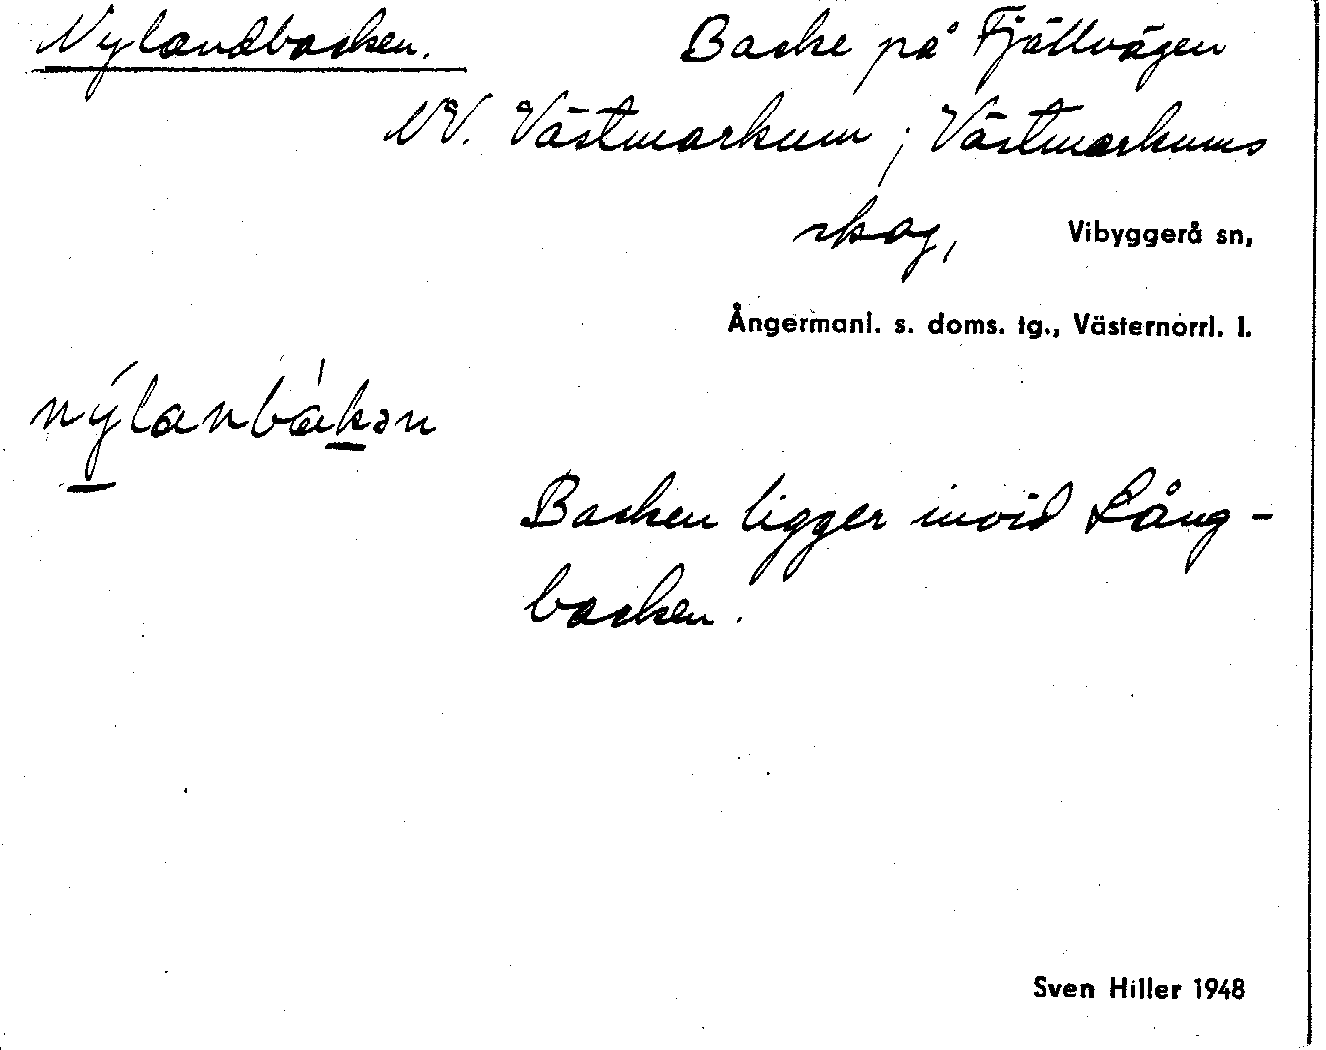 Nylandbacken. Backe på Fjällvägen
NV. Västmarkum; Västmarkums
skog, Vibyggerå sn,
Ångermanl. s. doms. tg., Västernorrl. l.
nýlanbàkən
Backen ligger invid Lång-
backen.
Sven Hiller 1948